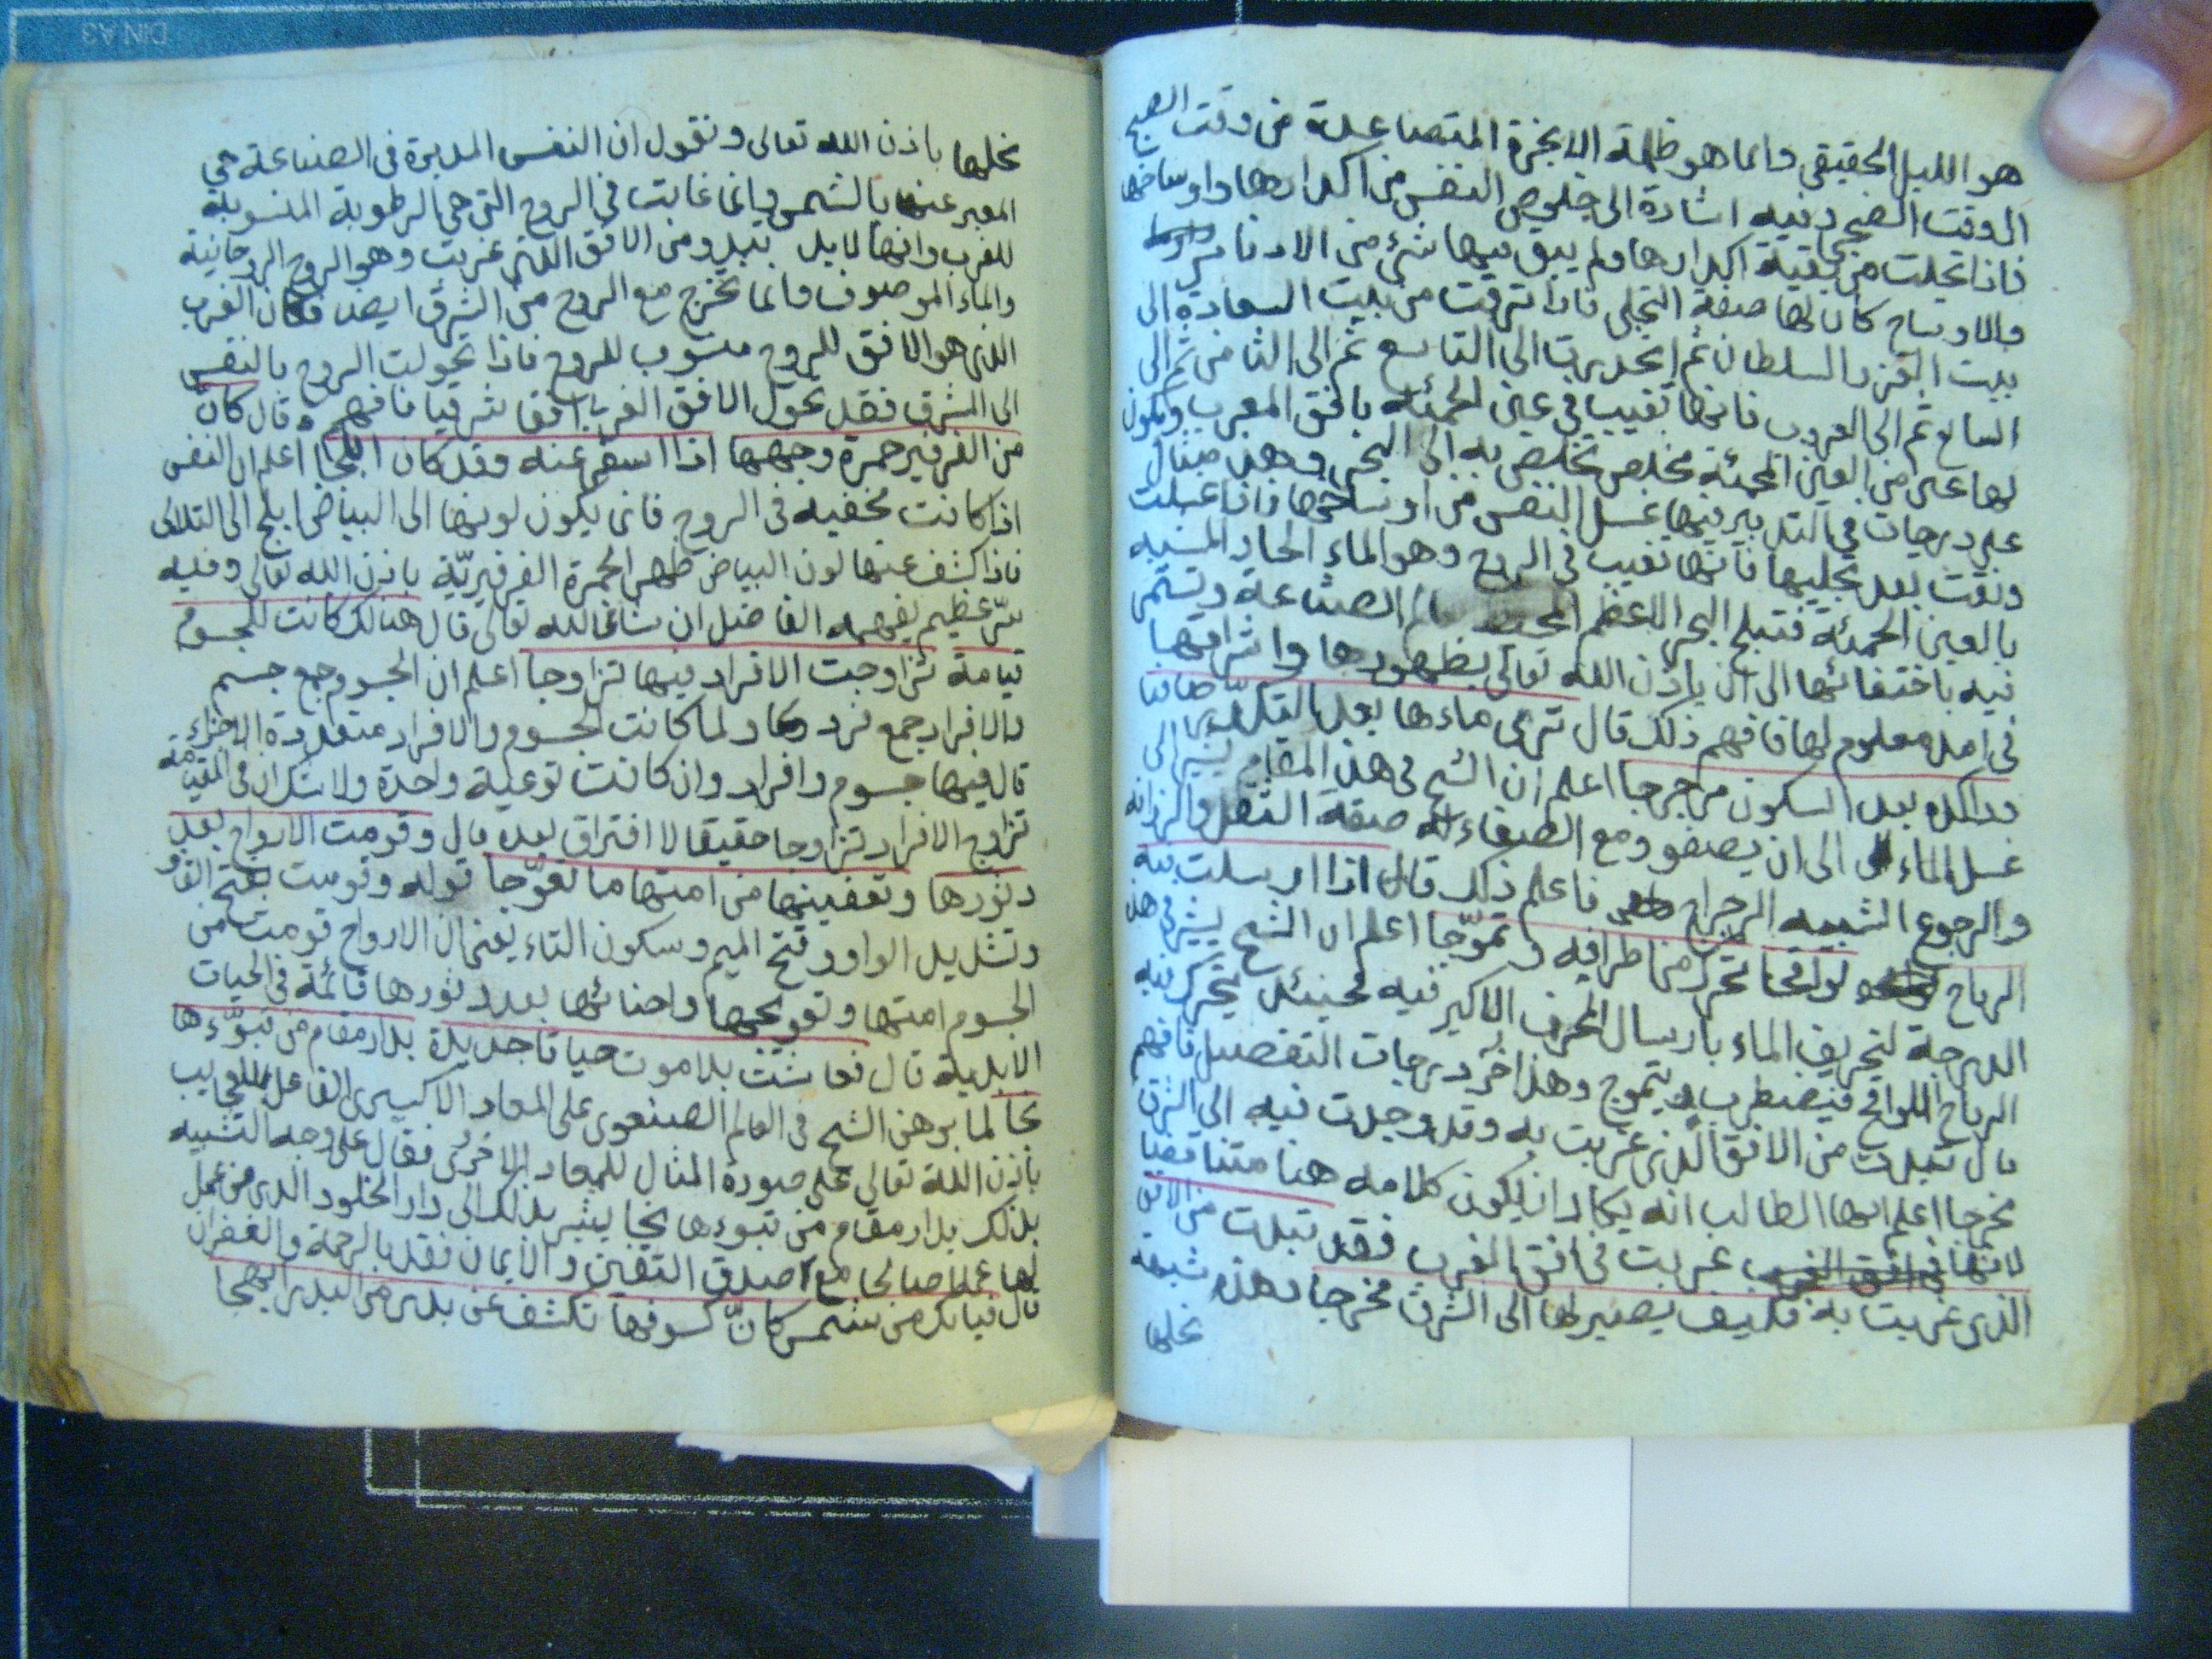 هو الليل الحقيقي وانما هو ظلمة الابخرة المتصاعدة من وقت الصبح
الوقت الصبح وفيه اشارة الى خلوص النفس من اكدارها واوساخها
فاذا تجلت من بقية اكدارها ولم يبق فيها شيء من الادناس
والاوساخ كان لها صفة التجلي فاذا ترقت من بيت السعادة الى
بيت العز والسلطان ثم انحدرت الى التاسع ثم الى الثامن ثم الى
السابع ثم الى الغروب فانها تغيب في عين الحمئة بافق المغرب ويكون
لها عين من العين الحمئة مخلص تخلص به الى البحر وهذا مثال
على درجات في التدبير فيها غسل النفس من اوساخها فاذا غسلت
ونقت بعد تجليها فانها تغيب في الروح وهو الماء الحار المشبه
بالعين الحمئة فتبلج البحر الاعظم الصناعة وتستمر
فيه باختفائها الى ان ياذن الله تعالى بظهورها واشراقها
في امد معلوم لها فافهم ذلك قال ترى ماءها بعد التكدر صافيا
وراكده بعد السكون مرجرجا اعلم ان الشيخ في هذا المقام يشير الى
غسل الماء الى ان يصفو ومع الصفاء له صفة الثقل والرزانة
والرجوع الشبيه الرجراج فاعلم ذلك قال اذا ارسلت فيه
الرياح لواقحا تحرك من اطرافه وتموجا اعلم ان الشيخ يشير في هذه
الدرجة لتحريف الماء بارسال الحرف الاكبر فيه فحينئذ يتحرك فيه
الرياح اللواقح فيضطرب ويتموج وهذا اخر درجات التفصيل فافهم
قال تبدت من الافق الذي غربت به وقد وجدت فيه الى الشرق
مخرجا اعلم ايها الطالب انه يكاد ان يكون كلامه هنا متناقضا
لانها غربت في افق الغرب فقد تبدت من الافق
الذي غربت به فكيف يصير لها الى الشرق مخرجا وهذه شبهة
نحلها
نحلها باذن الله تعالى ونقول ان النفس المدبرة في الصناعة هي
المعبر عنها بالشمس وانما غابت في الروح التي هي الرطوبة المنسوبة
للغرب وانها لابد تبدو من الافق الذي غربت وهو الروح الروحانية
والماء الموصوف وانما تخرج مع الروح من الشرق ايضا فكان الغرب
الذي هو الافق للروح منسوب للروح فاذا تحولت الروح بالنفس
الى المشرق فقد تحول الافق الغربي افقا شرقيا فافهم وقال كان
من الفرفير حمرة وجهها اذا اسفر عنه وقد كان ابلجا اعلم ان النفس
اذا كانت مخفيه في الروح فانما يكون لونها الى البياض ابلج الى التلالي
فاذا كشف عنها لون البياض ظهر الحمرة الفرفيرية باذن الله تعالى وفيه
سر عظيم يفهمه الفاضل ان شاء الله تعالى قال هنالك كانت للجسوم
قيامة تزاوجت الافراد فيها تزاوجا اعلم ان الجسوم جمع جسم
والافراد جمع فرد ولما كانت الجسوم والافراد متعددة الاجزاء
قال فيها جسوم وافراد وان كانت نوعية واحدة ولا شك ان في القيامة
تزاوج الافراد تزاوجا حقيقا لا افتراق بعده قال وقومت الارواح بعد
دثورها وتعفينها من امتها ما تعوجا قوله وقومت بفتح القاف
وتشديد الواو وفتح الميم وسكون التاء يعني ان الارواح قومت من
الجسوم امتها وتعويجها واحنائها بعد دثورها قائمة في الحيات
الابدية قال فعاشت بلا موت حياتا جديدة بدار مقام من تبوءها
نجا لما برهن الشيخ في العالم الصنعوي على المعاد الاكسيري الفاعل العجايب
باذن الله تعالى على صورة المثال للمعاد الاخرى فقال على وجه التشبيه
بذلك بدار مقام من تبوءها نجا يشير بذلك الى دار الخلود الذي من عمل
لها عملا صالحا مع صدق اليقين والايمان فقد بالرحمة والغفران
قال فيا لك من شمس كان كسوفها تكشف عن بدر من البدر ابهجا